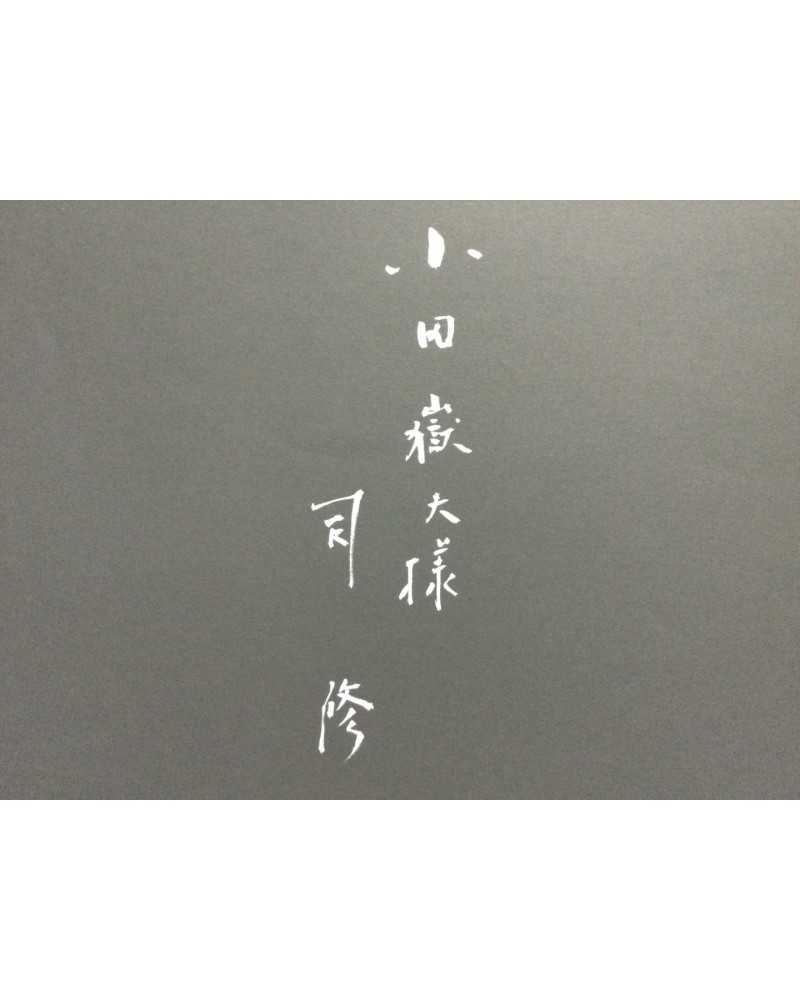 小田嶽大様
司修